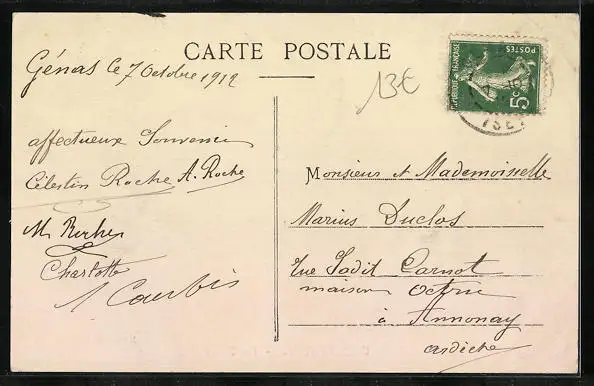 CARTE POSTALE
Génas le 7 Octobre 1912
13€
POSTES
REPUBLIQUE FRANÇAISE
5c
ISE
affectueux Souvenir
Célestin Roche A. Roche
M Roche
Charlotte
Courbis
Monsieur et Mademoiselle
Marius Duclos
rue Sadit Carnot
maison Octru
à Annonay
ardèche